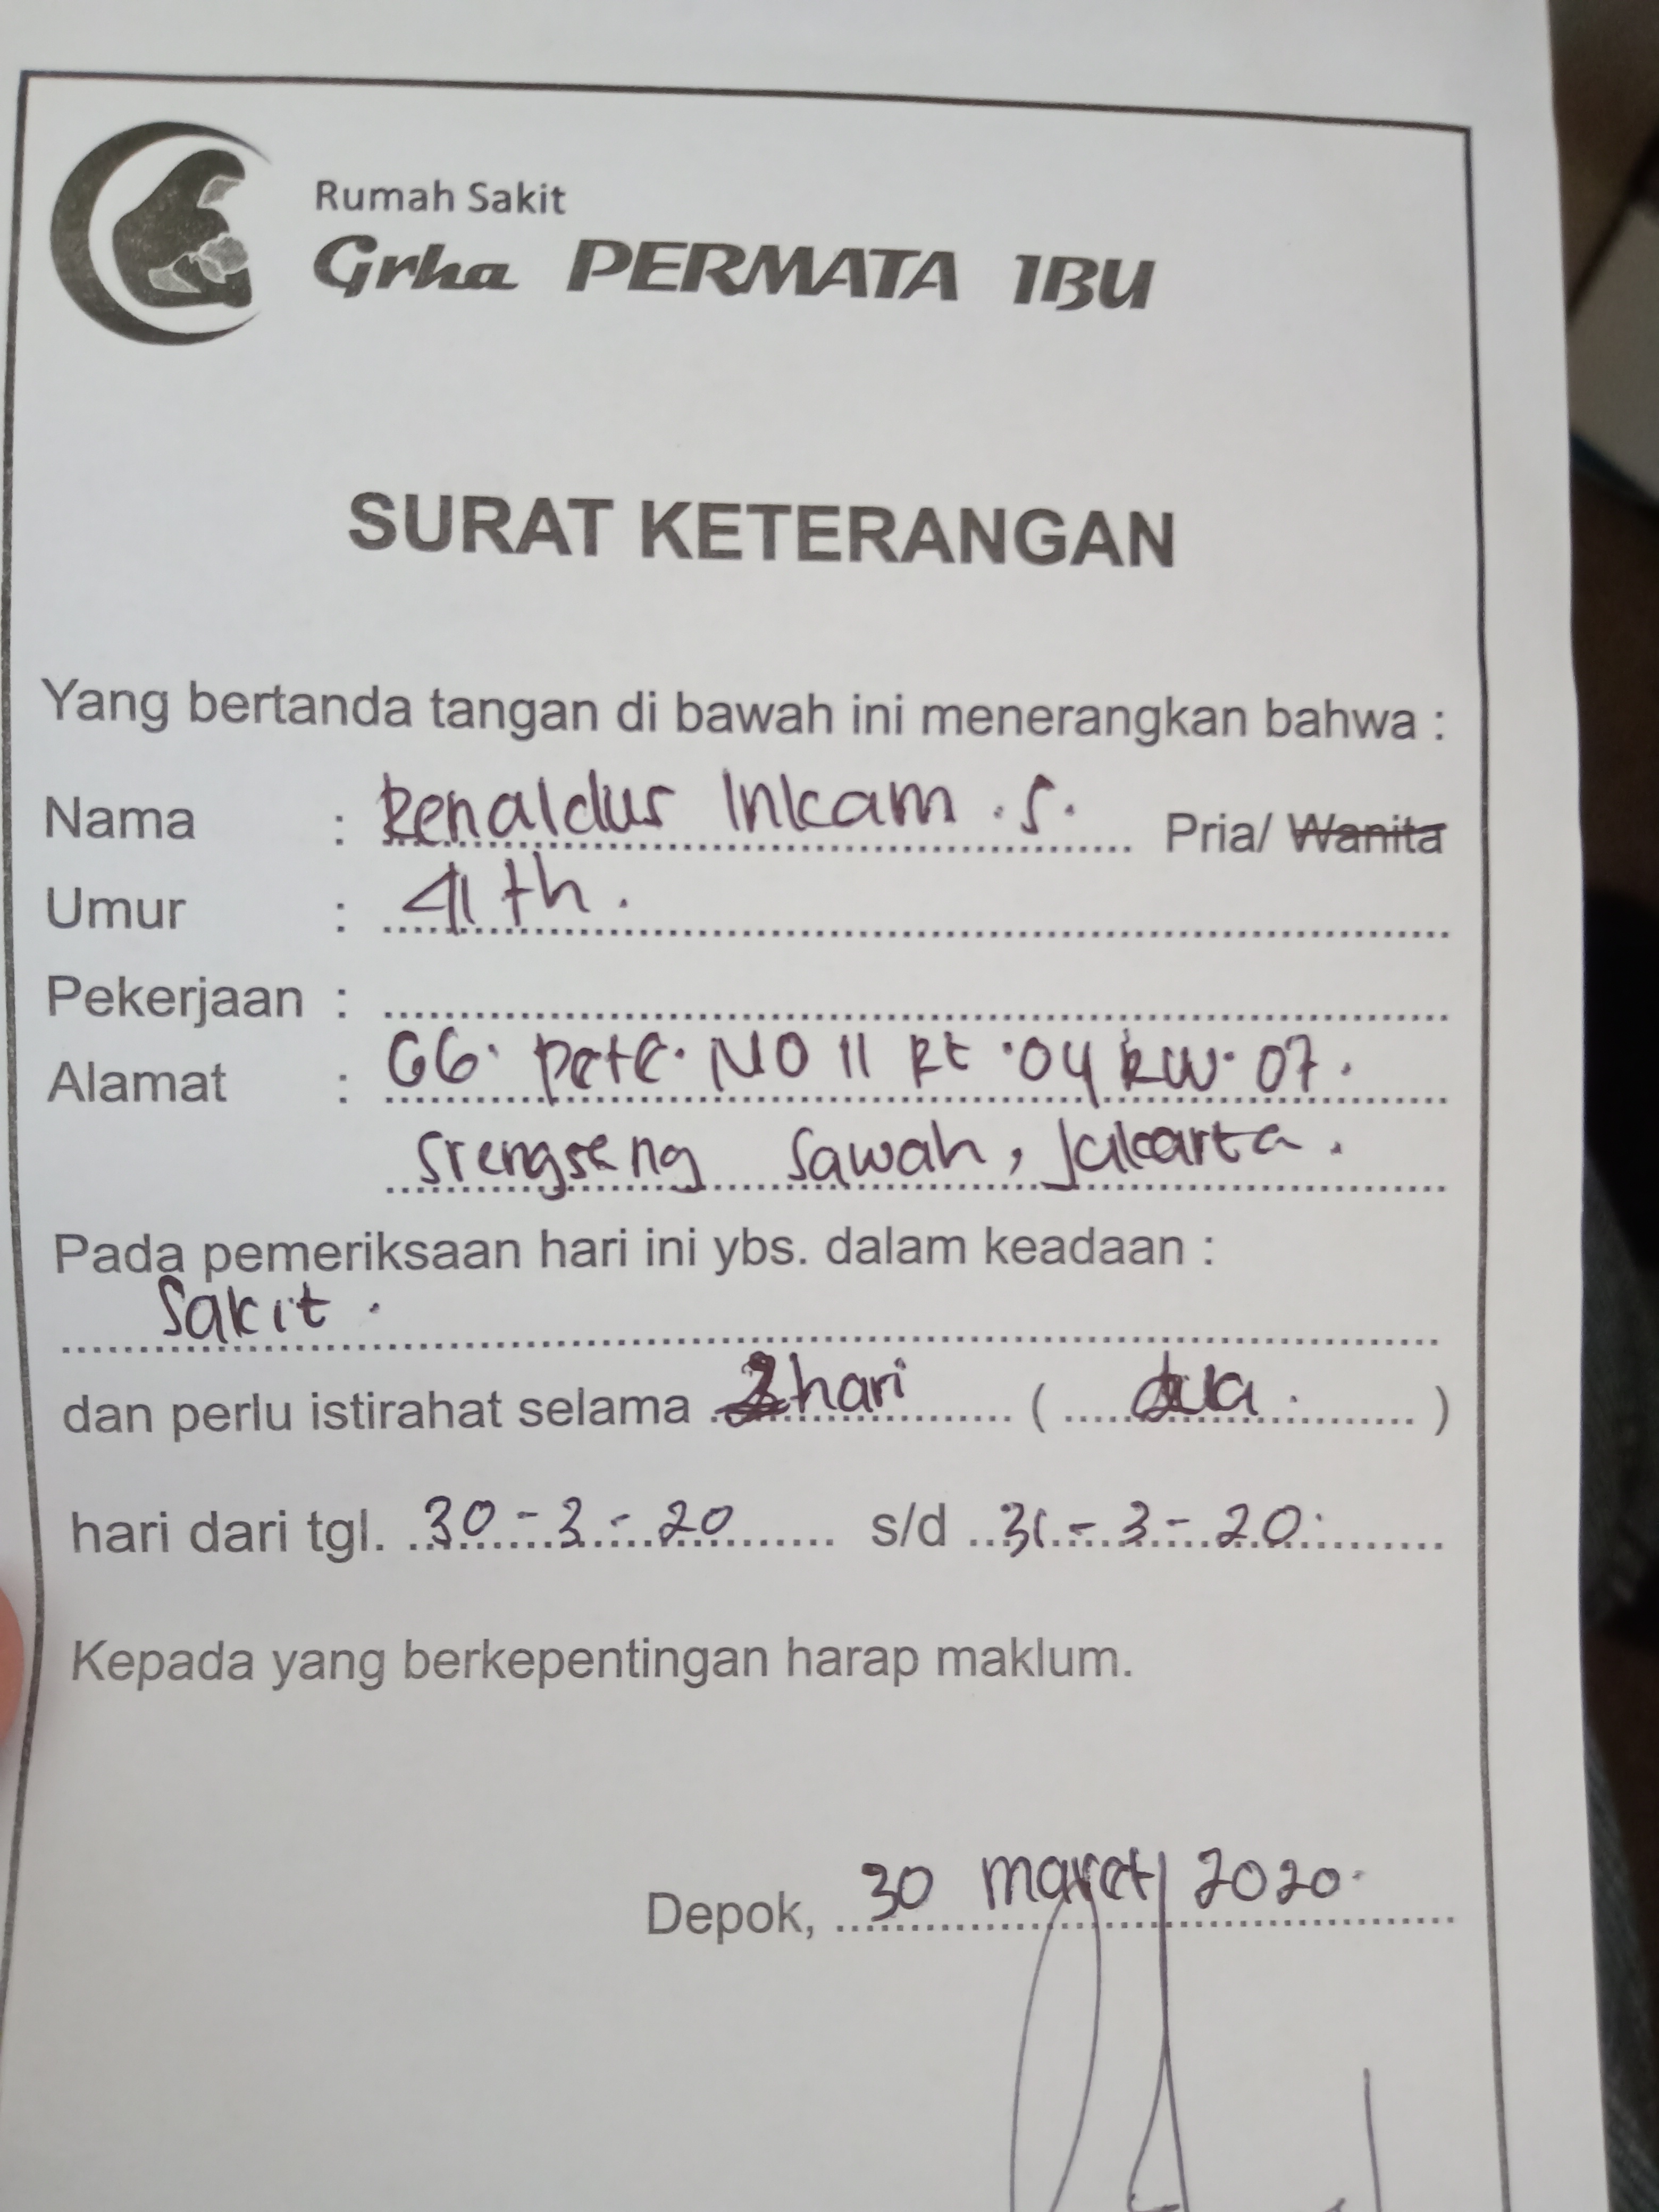 Rumah Sakit
Grha PERMATA IBU
SURAT KETERANGAN
Yang bertanda tangan di bawah ini menerangkan bahwa :
Nama : Renaldus Inkam . S. Pria/ Wanita
Umur : 41 th .
Pekerjaan :
Alamat : GG. Pete. NO 11 Rt .04 RW. 07.
Srengseng Sawah, Jakarta .
Pada pemeriksaan hari ini ybs. dalam keadaan :
Sakit .
dan perlu istirahat selama 2 hari ( dua . )
hari dari tgl. 30 - 3 - 20 s/d 31 - 3 - 20.
Kepada yang berkepentingan harap maklum.
Depok, 30 maret 2020.